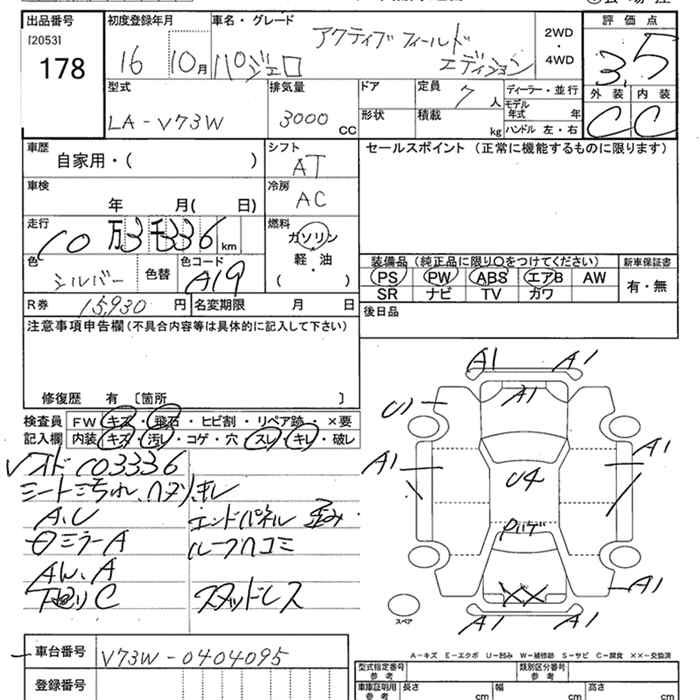 出品番号 初度登録年月 車名・グレード アクティブフィールド 2WD 評価点
[2053] 16 10月 パジェロ エディション ・4WD 3.5
178
型式 排気量 ドア 定員 7人 ディーラー・並行 外装 内装
LA-V73W 3000CC 形状 積載 kg モデル年式 年 C C
ハンドル 左・右
車歴 シフト セールスポイント (正常に機能するものに限ります)
自家用・( ) AT
車検 冷房
年 月( 日) AC
走行 燃料
10万3千336km ガソリン
軽・油
( )
色 シルバー 色替 色コード A19
装備品 (純正品に限り○をつけてください) 新車保証書
PS PW ABS エアB AW 有・無
SR ナビ TV カワ
R券 15,930円 名変期限 月 日 後日品
注意事項申告欄 (不具合内容等は具体的に記入して下さい)
修復歴 有 [箇所 ]
検査員 FW キズ・飛石・ヒビ割・リペア跡・×要
記入欄 内装 キズ・汚レ・コゲ・穴・スレ・キレ・破レ
103336
シート汚れ、ヘタリ、キレ
A、U エンドパネル 歪み
ミラーA ルーフ凹コミ
AW、A
下廻りC スタッドレス
A1 A1
A1
U1
A1 A1
U4
ハゲ
A1
XX
A1 A1
スペア
A-キズ E-エクボ U-凹み W-補修跡 S-サビ C-腐食 ××-交換済
車台番号 V73W-0404095
登録番号
型式指定番号 参考 類別区分番号 参考
車庫証明用 参考 長さ cm 幅 cm 高さ cm